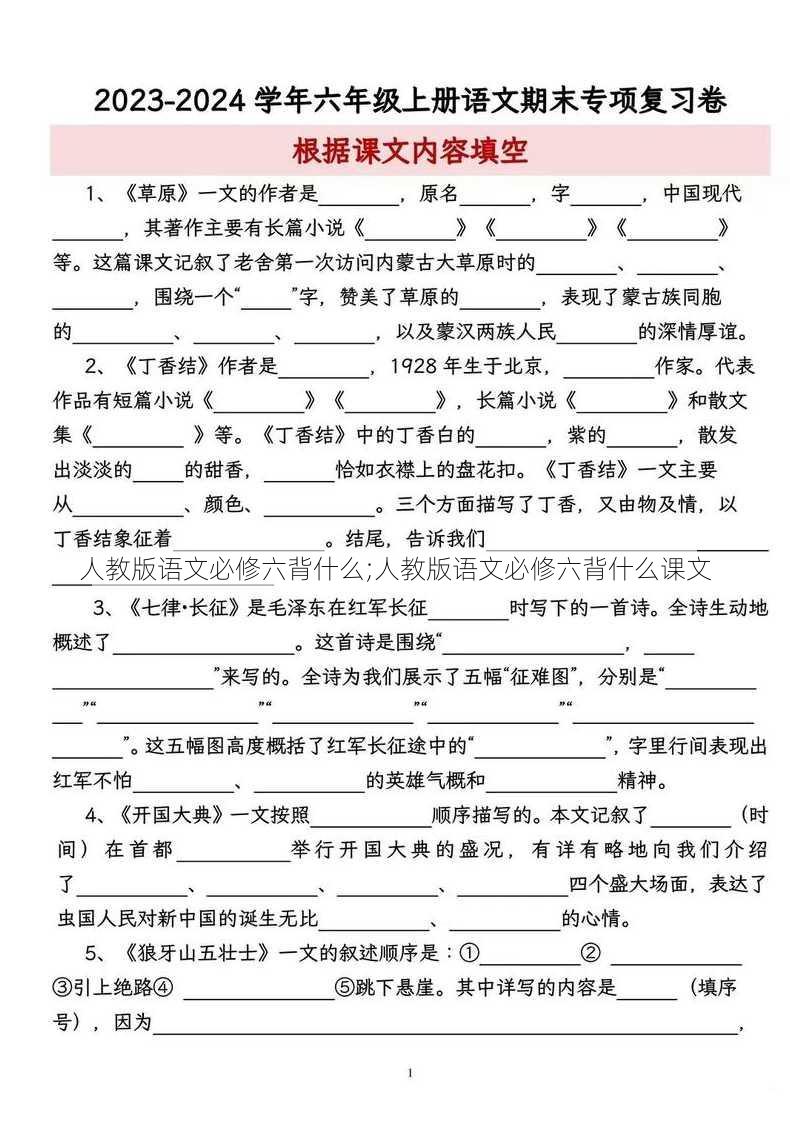 2023-2024 学年六年级上册语文期末专项复习卷
根据课文内容填空
1、《草原》一文的作者是________，原名_______，字_______，中国现代
_______，其著作主要有长篇小说《_________》《_________》《_________》
等。这篇课文记叙了老舍第一次访问内蒙古大草原时的________、________、
________，围绕一个“_____”字，赞美了草原的________，表现了蒙古族同胞
的__________、________、__________，以及蒙汉两族人民________的深情厚谊。
2、《丁香结》作者是_________，1928 年生于北京，_________作家。代表
作品有短篇小说《_________》《_________》，长篇小说《_________》和散文
集《_________ 》等。《丁香结》中的丁香白的_______，紫的_______，散发
出淡淡的_____的甜香，_______恰如衣襟上的盘花扣。《丁香结》一文主要
从___________、颜色、___________。三个方面描写了丁香，又由物及情，以
丁香结象征着_______________。结尾，告诉我们____________________________
人教版语文必修六背什么;人教版语文必修六背什么课文
3、《七律•长征》是毛泽东在红军长征________时写下的一首诗。全诗生动地
概述了__________________。这首诗是围绕“__________________，_____
________________”来写的。全诗为我们展示了五幅“征难图”，分别是“_________
___”“________________”“______________”“_____________”“__________________
_______”。这五幅图高度概括了红军长征途中的“_____________”，字里行间表现出
红军不怕__________、___________的英雄气概和_____________精神。
4、《开国大典》一文按照____________顺序描写的。本文记叙了________（时
间）在首都___________举行开国大典的盛况，有详有略地向我们介绍
了___________、___________、____________、___________四个盛大场面，表达了
虫国人民对新中国的诞生无比___________、__________的心情。
5、《狼牙山五壮士》一文的叙述顺序是：①__________② _____________
③引上绝路④ _______________⑤跳下悬崖。其中详写的内容是______（填序
号），因为__________________________________________________________，
1